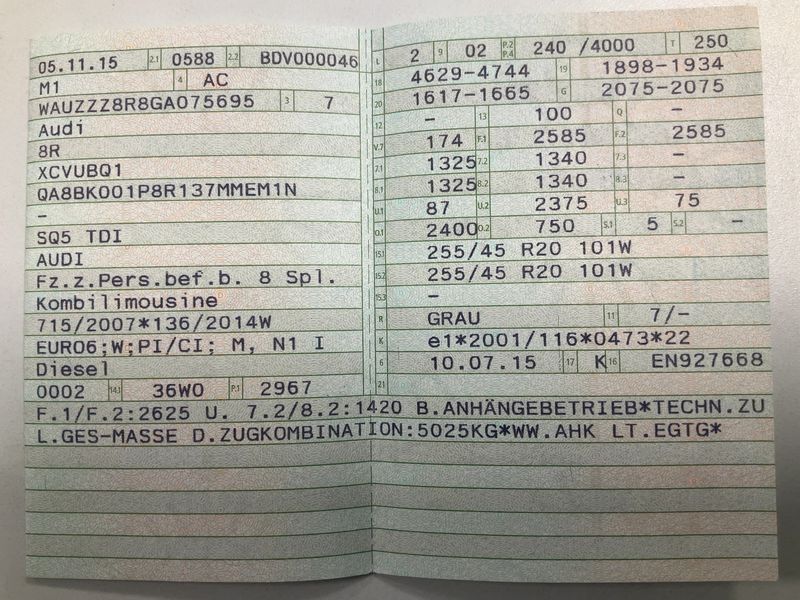 05.11.15 2.1 0588 2.2 BDV000046
M1 4 AC
WAUZZZ8R8GA075695 3 7
Audi
8R
XCVUBQ1
QA8BK001P8R137MMEM1N
–
SQ5 TDI
AUDI
Fz.z.Pers.bef.b. 8 Spl.
Kombilimousine
715/2007*136/2014W
EURO6;W;PI/CI; M, N1 I
Diesel
0002 14.1 36W0 P.1 2967
L 2 9 02 P.2 P.4 240 /4000 T 250
18 4629-4744 19 1898-1934
20 1617-1665 G 2075-2075
12 – 13 100 Q –
V.7 174 F.1 2585 F.2 2585
7.1 1325 7.2 1340 7.3 –
8.1 1325 8.2 1340 8.3 –
U.1 87 U.2 2375 U.3 75
O.1 2400 O.2 750 S.1 5 S.2 –
15.1 255/45 R20 101W
15.2 255/45 R20 101W
15.3 –
R GRAU 11 7/–
K e1*2001/116*0473*22
6 10.07.15 17 K 16 EN927668
21
F.1/F.2:2625 U. 7.2/8.2:1420 B.ANHÄNGEBETRIEB*TECHN.ZU
L.GES-MASSE D.ZUGKOMBINATION:5025KG*WW.AHK LT.EGTG*